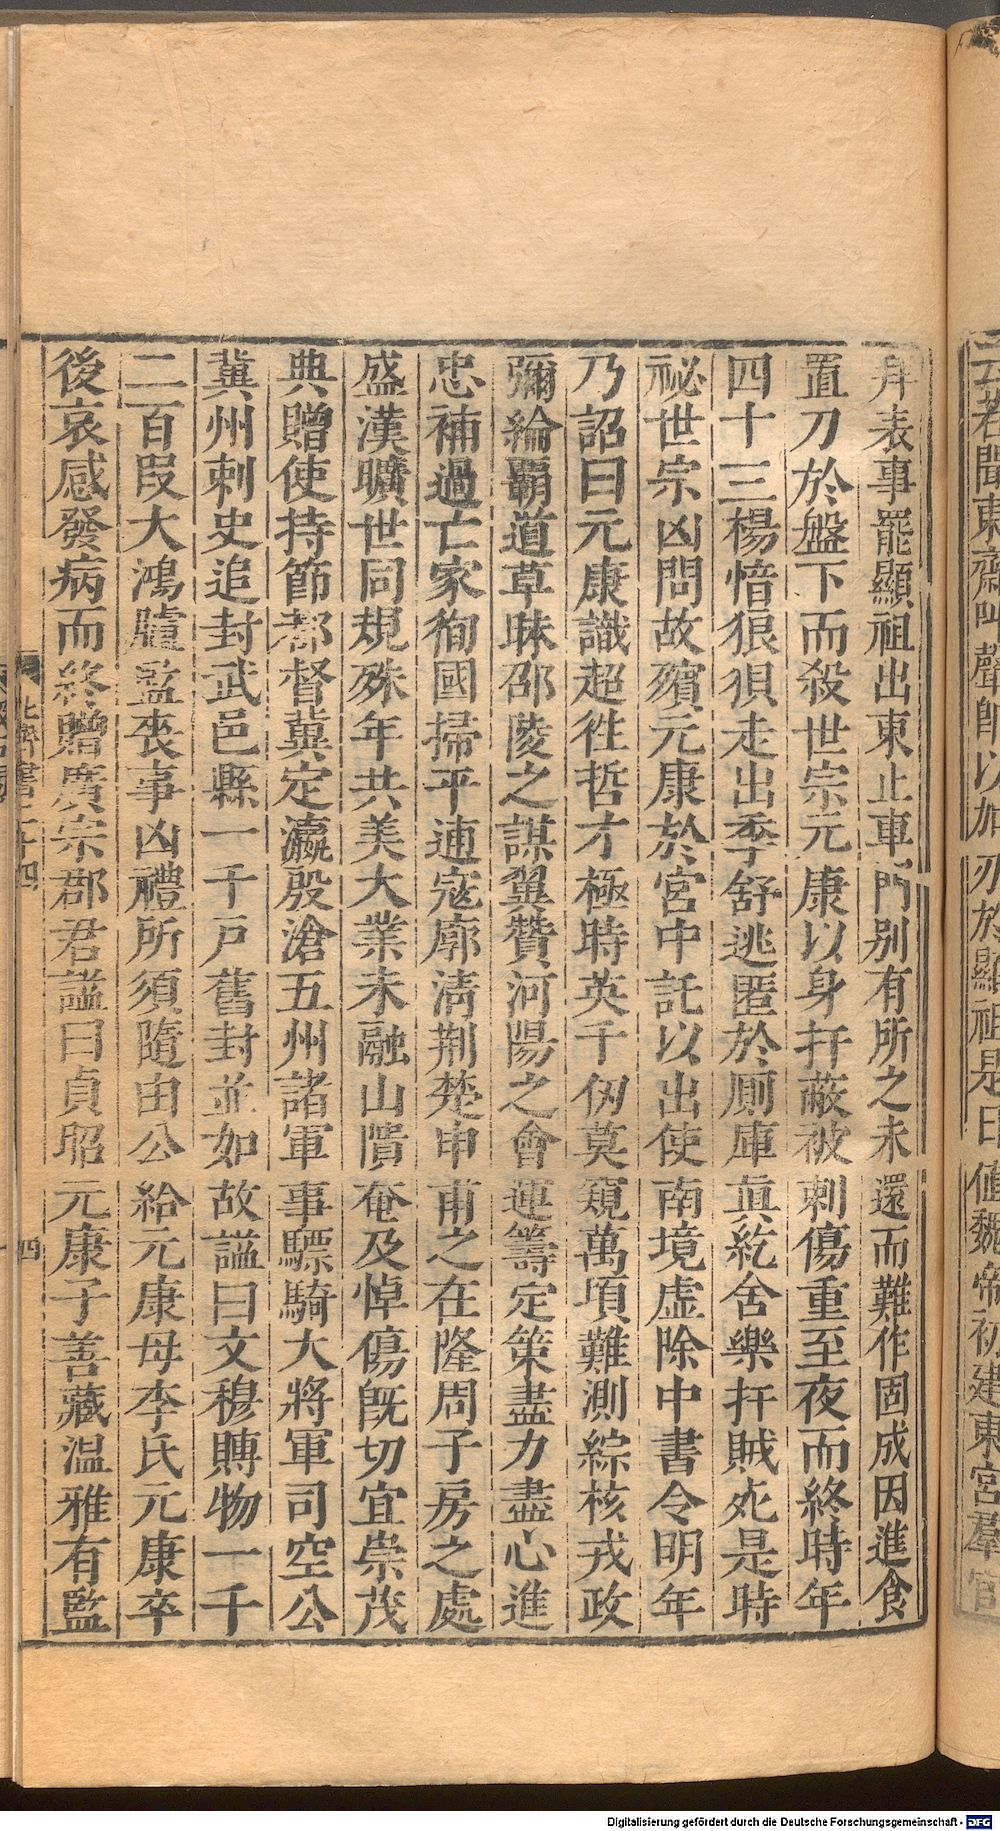 云若聞東齋叫聲即以加刃於顯祖是日值魏帝初建東宮羣官
拜表事罷顯祖出東止車門别有所之未還而難作固成因進食
置刀於盤下而殺世宗元康以身扞蔽被刺傷重至夜而終時年
四十三楊愔狼狽走出季舒逃匿於厠庫眞紇舍樂扞賊死是時
祕世宗凶問故殯元康於宮中託以出使南境虛除中書令明年
乃詔曰元康識超徃哲才極時英千仞莫窺萬頃難測綜核戎政
彌綸覇道草昧邵陵之謀翼贊河陽之會運籌定策盡力盡心進
忠補過亡家徇國掃平逋寇廓清荆楚申甫之在隆周子房之處
盛漢曠世同規殊年共美大業未融山隤奄及悼傷旣切宜崇茂
典贈使持節都督冀定瀛殷滄五州諸軍事驃騎大將軍司空公
冀州刺史追封武邑縣一千戸舊封並如故謚曰文穆賻物一千
二百段大鴻臚監喪事凶禮所須隨由公給元康母李氏元康卒
後哀感發病而終贈廣宗郡君謚曰貞昭元康子善藏温雅有監
北齊書二十四 四
Digitalisierung gefördert durch die Deutsche Forschungsgemeinschaft - DFG